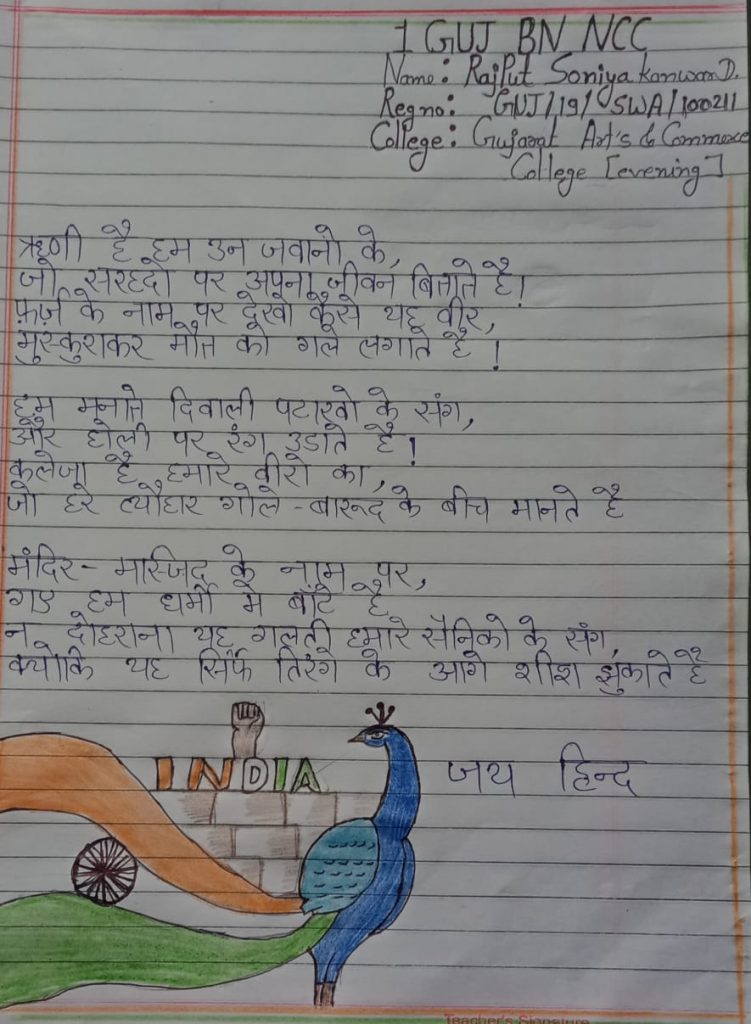 1 GUJ BN NCC
Name: Rajput Soniyakanwar D.
Reg no: GUJ/19/ SWA/100211
College: Gujarat Art's & Commerce
College [evening]
ऋणी है हम उन जवानो के,
जो सरहदो पर अपना जीवन बिताते है!
फ़र्ज़ के नाम पर देखो कैसे यह वीर,
मुस्कुराकर मौत को गले लगाते है !
हम मनाते दिवाली पटाखो के संग,
और होली पर रंग उडाते है!
कलेजा है हमारे वीरो का,
जो हर त्यौहार गोले-बारूद के बीच मानते है
मंदिर-मस्जिद के नाम पर,
गए हम धर्मो मे बाँटे है
न दोहराना यह गलती हमारे सैनिको के संग,
क्योकि यह सिर्फ तिरंगे के आगे शीश झुकाते है
जय हिन्द
INDIA
Teacher's Signature